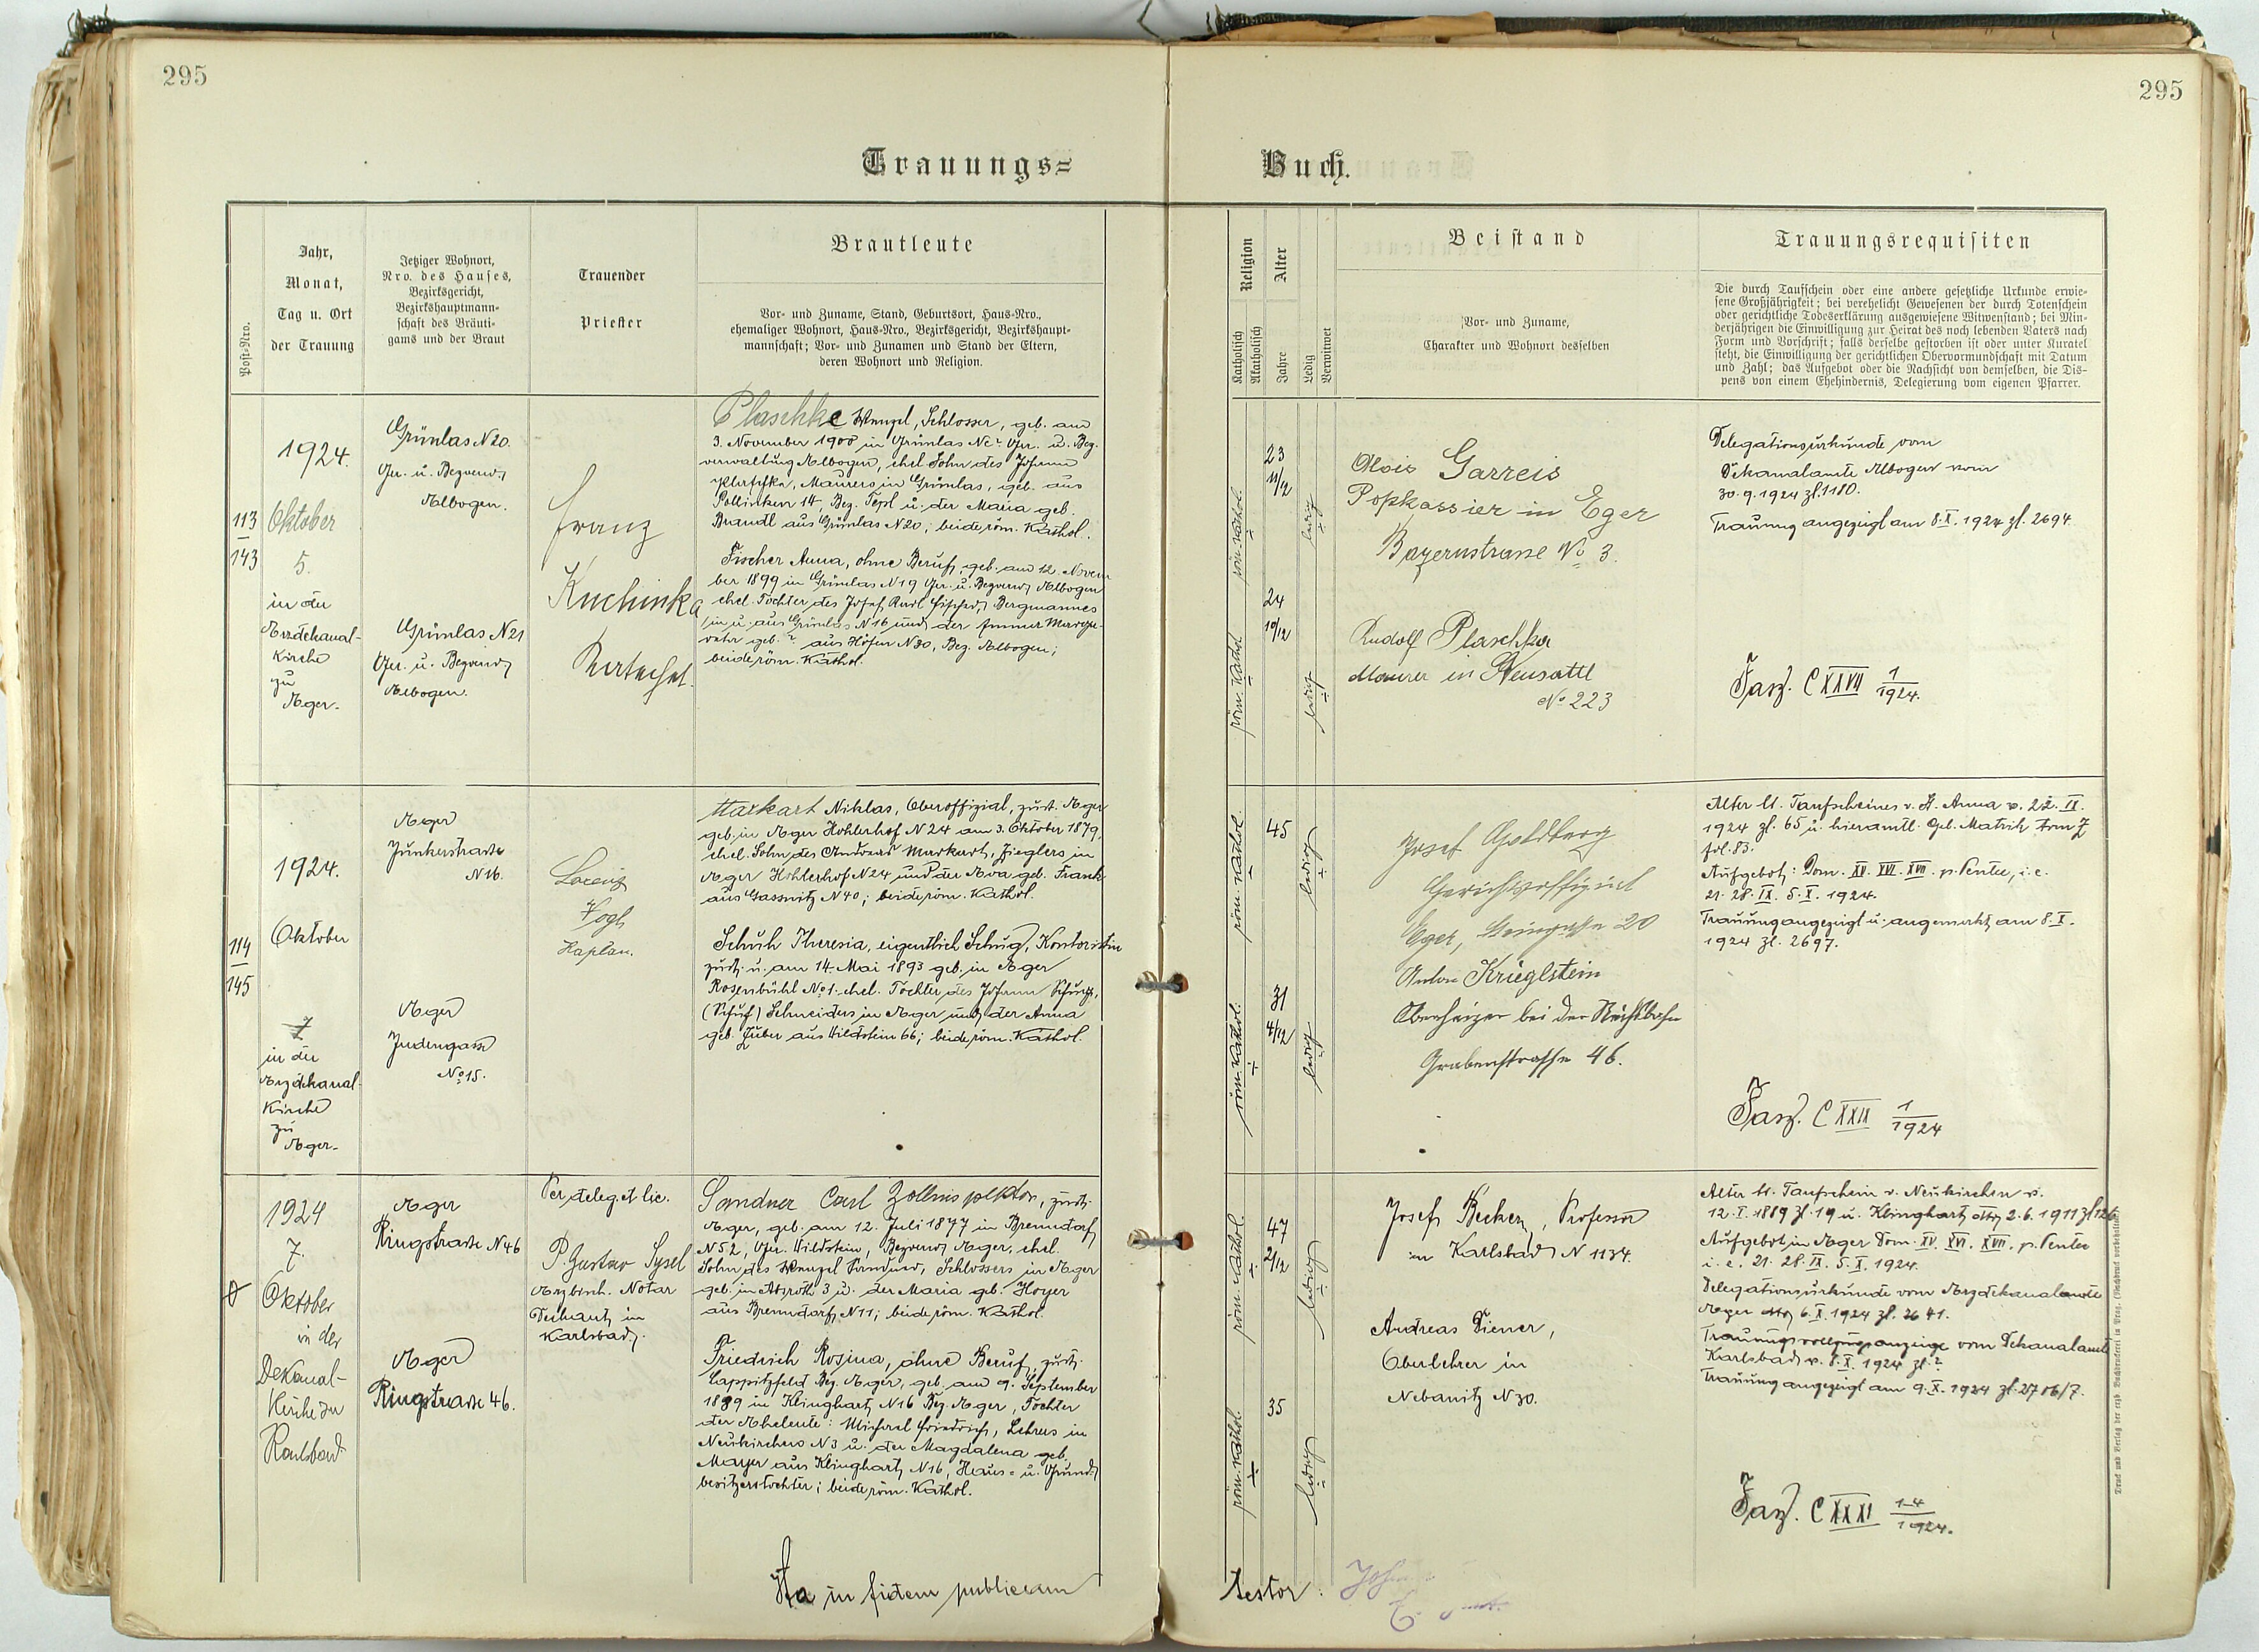 295
295
Trauungs=
Buch.
Post-Nro.
Jahr,
Monat,
Tag u. Ort
der Trauung
Jetziger Wohnort,
Nro. des Hauses,
Bezirksgericht,
Bezirkshauptmann-
schaft des Bräuti-
gams und der Braut
Trauender
Priester
Brautleute
Vor- und Zuname, Stand, Geburtsort, Haus-Nro.,
ehemaliger Wohnort, Haus-Nro., Bezirksgericht, Bezirkshaupt-
mannschaft; Vor- und Zunamen und Stand der Eltern,
deren Wohnort und Religion.
Religion
Katholisch
Akatholisch
Alter
Jahre
Ledig
Verwitwet
Beistand
Vor- und Zuname,
Charakter und Wohnort desselben
Trauungsrequisiten
Die durch Taufschein oder eine andere gesetzliche Urkunde erwie-
sene Großjährigkeit; bei verehelicht Gewesenen der durch Totenschein
oder gerichtliche Todeserklärung ausgewiesene Witwenstand; bei Min-
derjährigen die Einwilligung zur Heirat des noch lebenden Vaters nach
Form und Vorschrift; falls derselbe gestorben ist oder unter Kuratel
steht, die Einwilligung der gerichtlichen Obervormundschaft mit Datum
und Zahl; das Aufgebot oder die Nachsicht von demselben, die Dis-
pens von einem Ehehindernis, Delegierung vom eigenen Pfarrer.
113
143
1924.
Oktober
5.
in der
Erzdekanal-
Kirche
zu
Eger.
Grünlas N20.
Ger. u. Bezverw.
Elbogen.
Grünlas N21
Ger. u. Bezverw.
Elbogen.
Franz
Kuchinka
Plaschke Wenzel, Schlosser, geb. am
3. November 1900 in Grünlas No ? Ger. u. Bez.
verwaltung Elbogen, ehel. Sohn des Johann
Plaschka, Maurers in Grünlas, geb. aus
14, Bez. Tepl u. der Maria geb.
Brandl aus Grünlas N20; beide röm. Kathol.
Fischer Anna, ohne Beruf, geb. am 12. Novem
ber 1899 in Grünlas N19 Ger. u. Bezverw. Elbogen
ehel. Tochter des Josef Karl Fischer, Bergmannes
in u. aus Grünlas N16 und der
geb. ? aus Höfen N30, Bez. Elbogen;
beide röm. Kathol.
röm. Kathol.
23
11/12
ledig
röm. Kathol.
24
10/12
ledig
Alois Garreis
in Eger
Bayernstrasse No 3.
Rudolf Plaschka
Maurer in Neusattl
No 223
Delegationsurkunde vom
Dekanalamte Elbogen vom
30.9.1924 zl. 1180.
Trauung angezeigt am 8.X.1924 zl. 2694
Fasz. C XXVII 1/1924.
114
145
1924.
Oktober
7
in der
Erzdekanal-
Kirche
zu
Eger.
Eger
Junkerstrasse
N16.
Eger
Judengasse
No 15.
Lorenz
Vogl
Kaplan.
Markart Niklas, Oberoffizial, zust. Eger
geb. in Eger Kohlerhof N24 am 3. Oktober 1879,
ehel. Sohn des Andreas Markart, Zieglers in
Eger Kohlerhof N24 und der Eva geb. Frank
aus Gassnitz N40; beide röm. Kathol.
Schuh Theresia, eigentlich Schug, Kontoristin
zust. u. am 14. Mai 1893 geb. in Eger
Rosenbühl No 1. ehel. Tochter des Johann Schug,
(Schuh) Schneiders in Eger und der Anna
geb. Zuber aus Wildstein 66; beide röm. Kathol.
röm. Kathol.
45
ledig
röm. Kathol.
31
4/12
ledig
Josef Goldberg
Gerichtsoffizial
Eger, 20
Anton Krieglstein
Oberheizer bei der
Grabenstrasse 46.
Alter lt. Taufscheines v. St. Anna v. 22.IX.
1924 zl. 65 u. hieramtl. Geb. Matrik tom Z
fol. 83.
Aufgebot: Dom. XV. XVI. XVII. p. Pentec., i.e.
21. 28. IX. 5. X. 1924.
Trauung angezeigt u. angemerkt am 8.X.
1924 zl. 2697.
Fasz. C XXIX 1/1924
1924
7.
Oktober
in der
Dekanal-
Kirche zu
Karlsbad
Eger
Ringstrasse N46
Eger
Ringstrasse 46.
Per deleg. et lic.
P. Gustav Sysel
Erzbisch. Notar
Dechant in
Karlsbad.
Sandner Carl Zollinspektor, zust.
Eger, geb. am 12. Juli 1877 in Brenndorf
N52, Ger. Wildstein, Bezverw. Eger, ehel.
Sohn des Wenzel Sandner, Schlossers in Eger
geb. in Absroth 3 u. der Maria geb. Hoyer
aus Brenndorf N11; beide röm. Kathol.
Friedrich Rosina, ohne Beruf, zust.
Lappitzfeld Bez. Eger, geb. am 9. September
1889 in Klinghart N16 Bez. Eger, Tochter
der Eheleute: Michael Friedrich, Lehrers in
Neukirchen N3 u. der Magdalena geb.
Mayer aus Klinghart N16, Haus= u. Grund-
besitzerstochter; beide röm. Kathol.
röm. Kathol.
47
2/12
ledig
röm. Kathol.
35
ledig
Josef Becker, Professor
in Karlsbad N 1134.
Andreas Diener,
Oberlehrer in
Nebanitz N30.
Alter lt. Taufschein v. Neukirchen v.
12.I.1889 zl. 19 u. Klinghart dto 2.6.1911 zl 126
Aufgebot in Eger Dom. XV. XVI. XVII. p. Pentec
i.e. 21. 28. IX. 5. X. 1924.
Delegationsurkunde vom Erzdekanalamte
Eger dto 6.X.1924 zl. 2641.
Trauungsvollzugsanzeige vom Dekanalamte
Karlsbad v. 8.X.1924 zl. ?
Trauung angezeigt am 9.X.1924 zl. 2706/7.
Fasz. C XXXI 1-4/1924.
Ita in fidem publicam
testor.